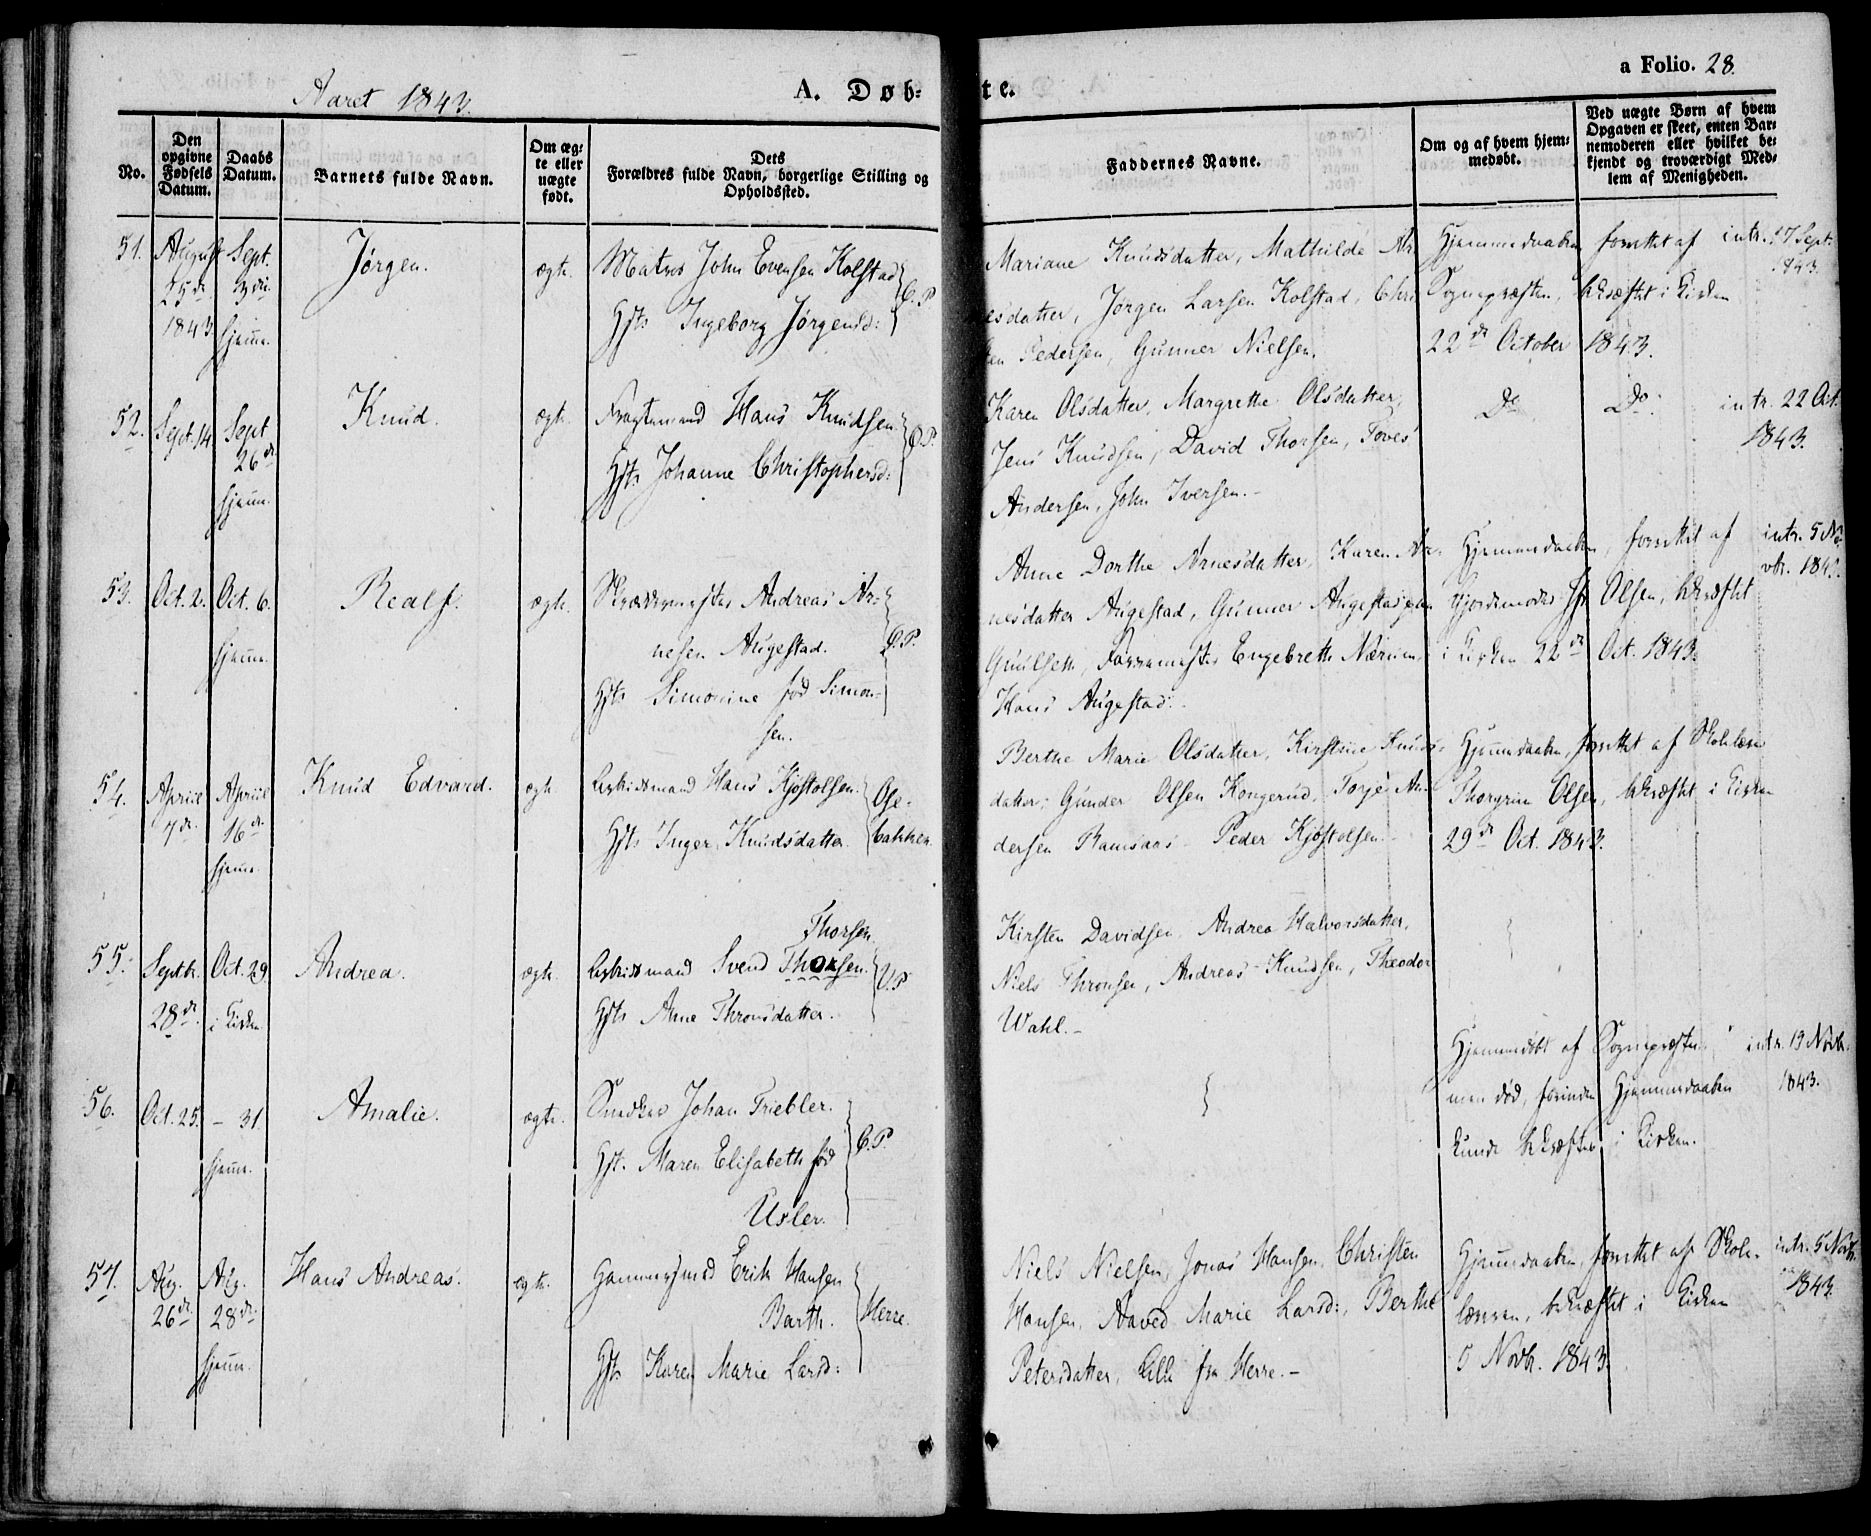 Aaret 1843.
A. Døb-
te.
a Folio. 28.
No.
Den
opgivne
Fødsels
Datum.
Daabs
Datum.
Barnets fulde Navn.
Om æg-
te eller
uægte
født.
Dets
Forældres fulde Navn, borgerlige Stilling og
Opholdssted.
Faddernes Navne.
Om og af hvem hjem-
medøbt.
Ved uægte Børn af hvem
Opgaven er skeet, enten Bar-
nemoderen eller hvilket be-
kjendt og troværdigt Med-
lem af Menigheden.
51.
August
25de
1843
Sept.
3die
hjem.
Jørgen.
ægte.
Matros John Evensen Kolstad
Hst. Ingeborg Jørgensd:
Mariane Knudsdatter, Mathilde An-
esdatter, Jørgen Larsen Kolstad, Chri
sten Pedersen, Gunner Nielsen.
Hjemmedaaben forrettet af
Sognepræsten, bekræftet i Kirken
22de October 1843.
intr. 17 Sept.
1843.
52.
Sept. 14
Sept
26de
hjem.
Knud.
ægte.
Fragtemand Hans Knudsen
Hst. Johanne Christophersd:
Karen Olsdatter, Margrethe Olsdatter,
Jens Knudsen, David Thorsen, Toves
Andersen, John Iversen.-
Do
Do
intr. 22 Oct.
1843.
53.
Oct. 2.
Oct. 6.
hjem.
Realf.
ægte.
Skræddermester Andreas Ar-
nesen Augestad.
Hst. Simonine fød Simon-
sen.
Anne Dorthe Arnesdatter, Karen Ar-
nesdatter Augestad, Gunner Augestad
Engebreth Nærum,
Hans Augestad.
Hjemmedaaben, forrettet af
Gjordemoder Olsen, bekræftet
i Kirken 22de Oct. 1843.
intr. 5 No-
vbr. 1843.
54.
Apriil
7de
Apriil
16de
hjem.
Knud Edvard.
ægte.
Arbeidsmand Hans Kjøstolsen.
Hst. Inger Knudsdatter.
Ose-
bakken.
Berthe Marie Olsdatter, Kirstine Knuds-
datter, Gunder Olsen Kongerud, Torje An-
dersen Ramsaas - Peder Kjøstolsen.-
Hjemmedaaben, forrettet af Skolelærer
Thorgrim Olsen, bekræftet i Kirken
29de Oct. 1843.
55.
Septbr.
28de
Oct. 29.
i Kirken
Andrea.
ægte.
Thorsen
Arbeidsmand Svend Thorsen.
Hst. Anne Thronsdatter.
V.P
Kirsten Davidsen, Andrea Halvorsdatter,
Niels Thronsen, Andreas Knudsen, Theodor
Wahl.-
56.
Oct. 25.
- 31.
hjem.
Amalie.
ægte.
Snedker Johan Triebler.
Hst. Maren Elisabeth fød
Usler.
Hjemmedøbt af Sognepræsten,
men død, forinden Hjemmedaaben
kunde bekræftes i Kirken.
intr. 19 Novbr.
1843.
57.
Aug.
26de
Aug.
28de
hjem.
Hans Andreas.
ægte.
Hammersmed Erik Hansen
Barth.
Hst. Karen Marie Larsd:
Herre.
Niels Nielsen, Jonas Hansen, Christen
Hansen, Aaved Marie Larsd:, Berthe
Petersdatter, alle fra Herre.-
Hjemmedaaben forrettet af Skole-
læreren, bekræftet i Kirken
5 Novbr. 1843.
intr. 5 Novbr.
1843.